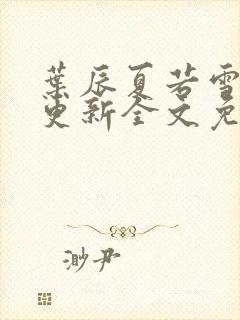 葉辰夏若雪
更新全文免
渺尹